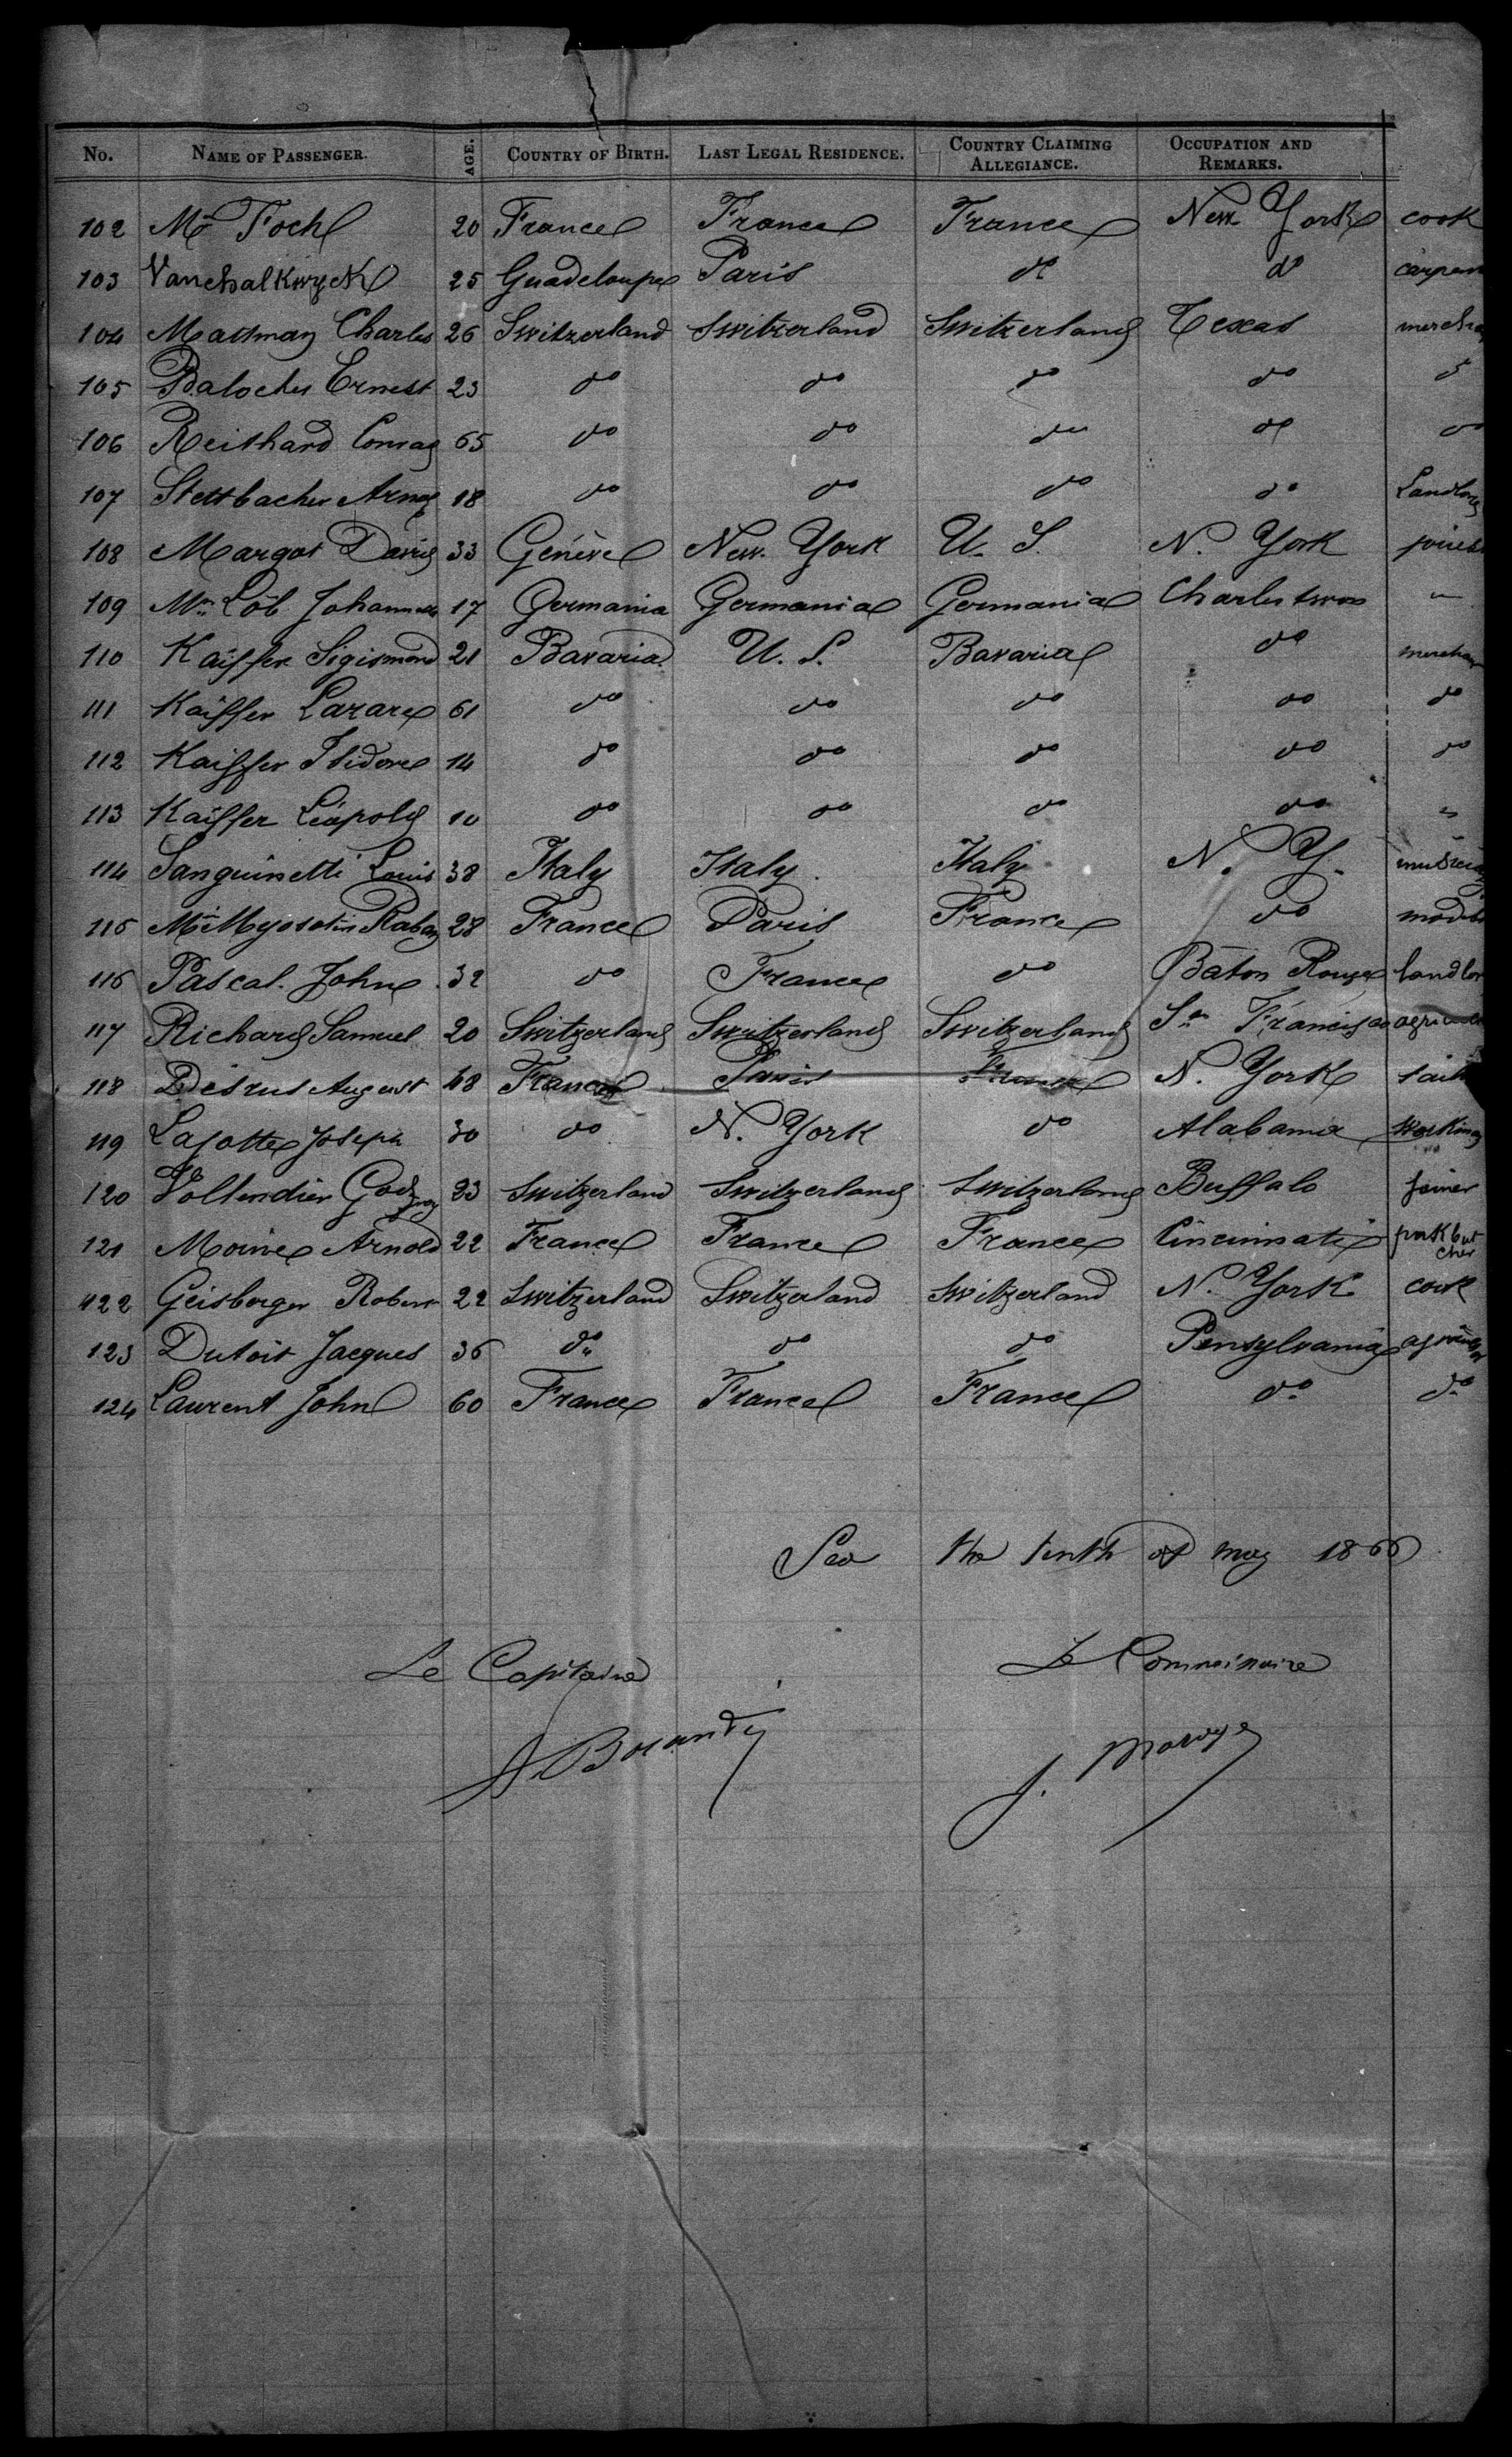 No. NAME OF PASSENGER. AGE. COUNTRY OF BIRTH. LAST LEGAL RESIDENCE. COUNTRY CLAIMING ALLEGIANCE. OCCUPATION AND REMARKS.
102 Foch 20 France France France New York cook
103 Vanchalkwyck 25 Guadeloupe Paris do do carpen
104 Charles 26 Switzerland Switzerland Switzerland Texas mercha
105 Ernest 23 do do do do do
106 Reithard Conrad 65 do do do do do
107 Stettbacher Arnold 18 do do do do Landlord
108 Margot David 33 Genève New. York U. S. N. York joiner
109 Löb 17 Germania Germania Germania Charlestown "
110 Kaïffer Sigismond 21 Bavaria U. S. Bavaria do merchan
111 Kaïffer Lazare 61 do do do do do
112 Kaïffer Isidore 14 do do do do do
113 Kaïffer Léopold 10 do do do do "
114 Sanguinetti Louis 38 Italy Italy. Italy N. Y. musician
115 Myosotis 28 France Paris France do
116 Pascal. John 32 do France do Bâton Rouge landlor
117 Richard Samuel 20 Switzerland Switzerland Switzerland Sn Francisco agricult
118 August 48 France Paris France N. York tail
119 Joseph 30 do N. York do Alabama working
120 33 Switzerland Switzerland Switzerland Buffalo joiner
121 Moine Arnold 22 France France France Cincinnati porkbutcher
122 Geisberger Robert 22 Switzerland Switzerland Switzerland N. York cook
123 Dutoit Jacques 36 do do do Pensylvania
124 Laurent John 60 France France France do do
Sea the tenth of may 1866
Le Capitaine Le Commissaire
J.